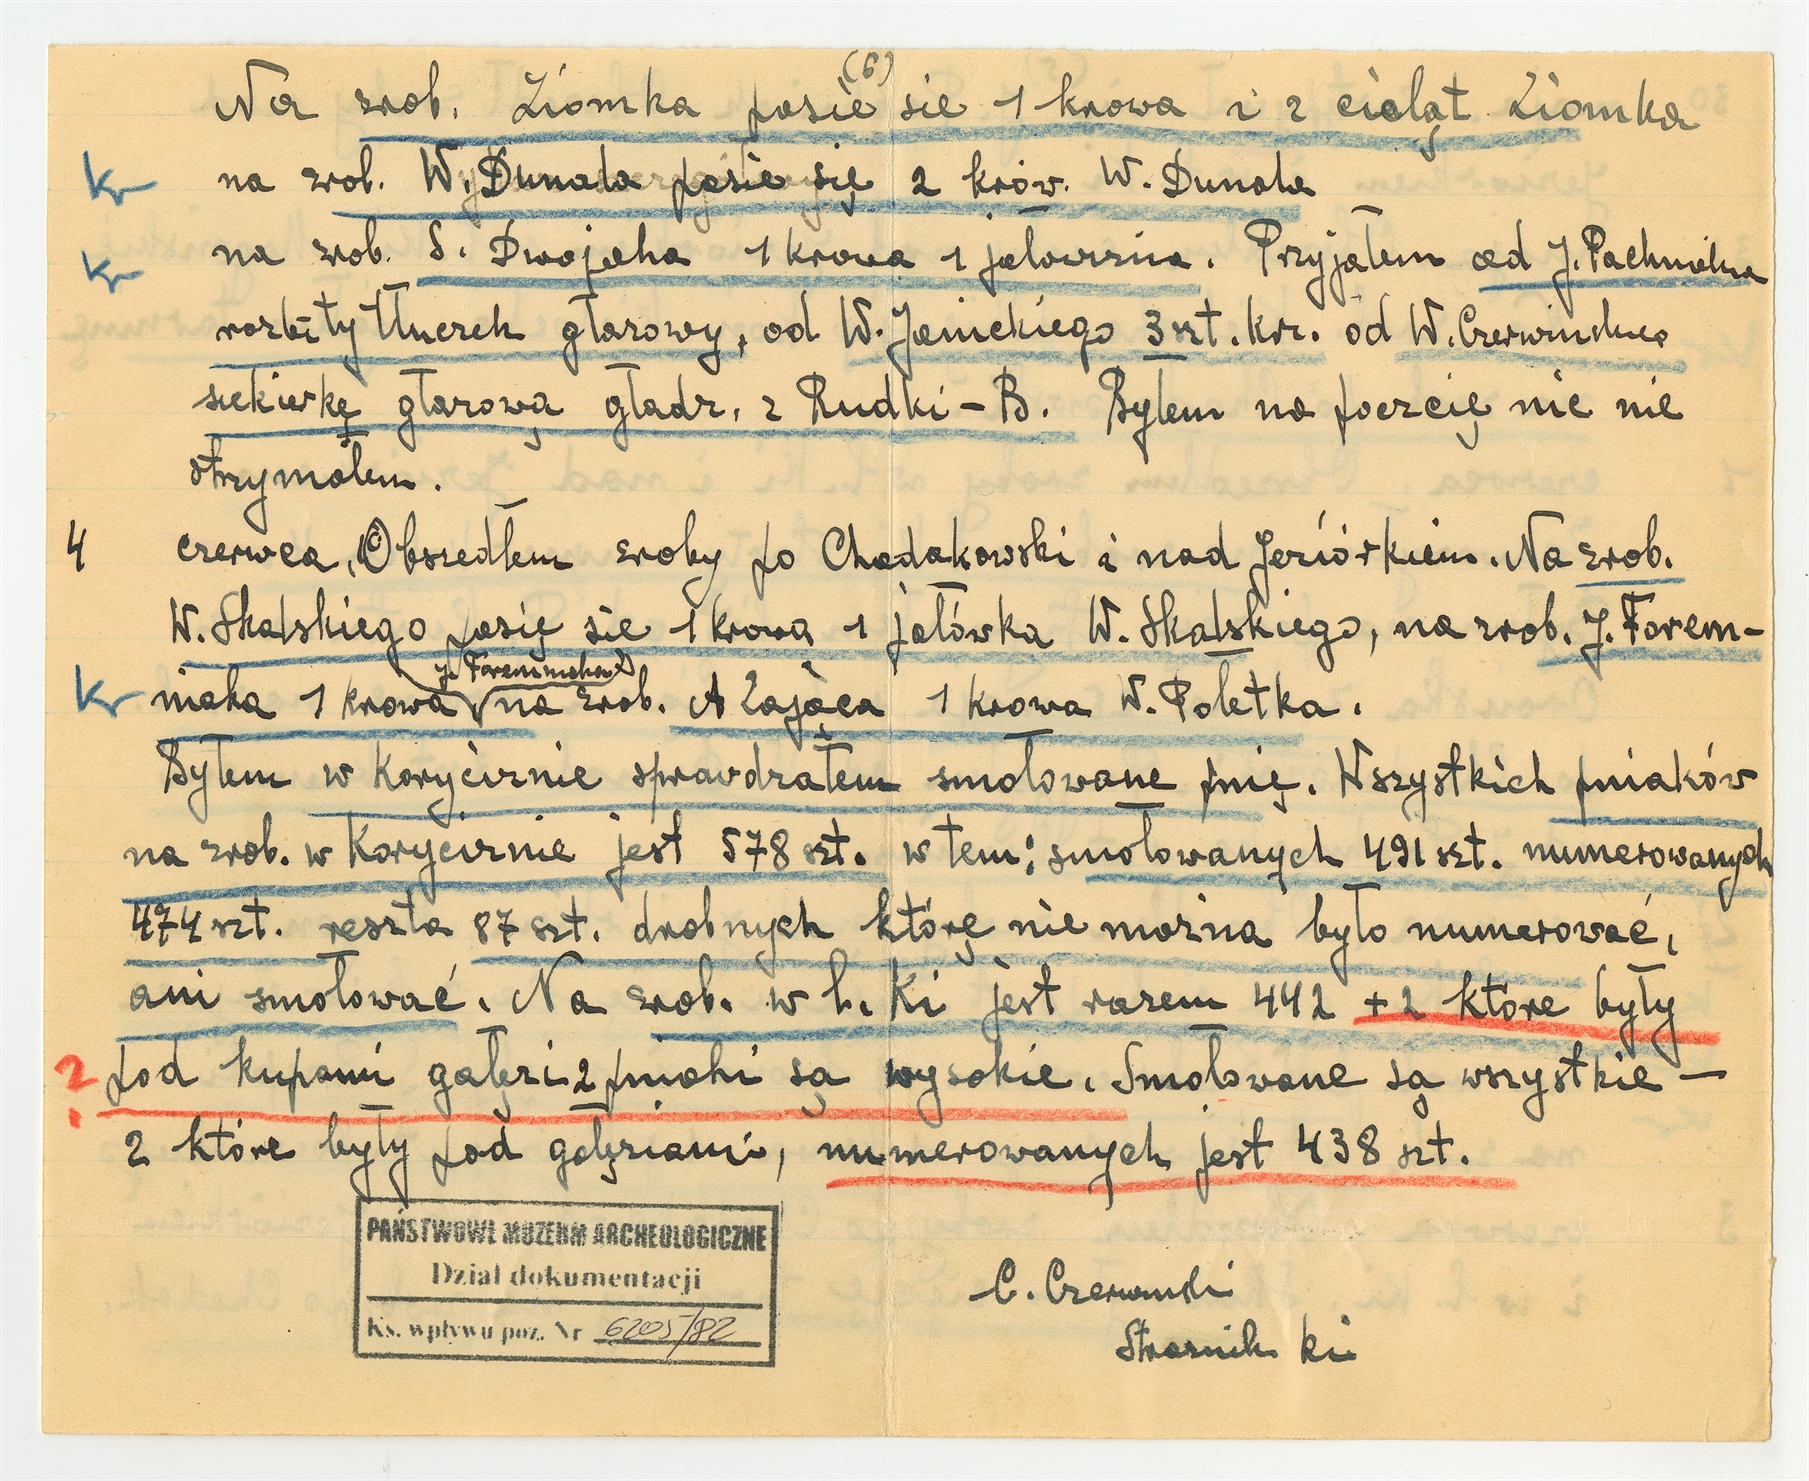 (6)
Na zrob. Ziomka pasie sie 1 krowa i 2 cieląt Ziomka
Kr na zrob. W. Dunala pasie się 2 krów. W. Dunala
Kr na zrob. S. Dwojaka 1 krowa 1 jałowizna. Przyjąłem od J. Pachniaka
rozbity tłuczek głazowy, od W. Janickiego 3 szt. kr. od W. Czerwińskiego
siekierkę głazową gładz. z Rudki – B. Byłem na poczcie nic nie
otrzymałem.
4 czerwca, Obszedłem zroby po Chodakowski i nad Jeziórkiem. Na zrob.
W. Skalskiego pasię się 1 krowa 1 jałówka W. Skalskiego, na zrob. J. Forem-
J. Foremniaka
Kr niaka 1 krowa na zrob. A Zająca 1 krowa W. Poletka.
Byłem w Korycirnie sprawdzałem smołowane pnię. Wszystkich pniaków
na zrob. w Korycirnie jest 578 szt. w tem: smołowanych 491 szt. numerowanych
474 szt. reszta 87 szt. drobnych którę nie można było numerować,
ani smołować. Na zrob. w h. Ki jest razem 442 + 2 które były
? pod kupami gałęzi 2 pniaki są wysokie. Smołowane są wszystkie –
2 które były pod gałęziami, numerowanych jest 438 szt.
PAŃSTWOWE MUZEUM ARCHEOLOGICZNE
Dział dokumentacji
Ks. wpływu poz. Nr 6205/82
C. Czerwiński
Strażnik kii